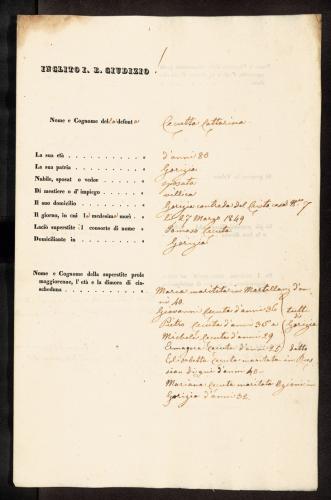 INCLITO I. R. GIUDIZIO
Nome e Cognome della defonta Cattarina
La sua età d'anni 80
La sua patria Gorizia
Nubile, sposat o vedov sposata
Di mestiere o d'impiego villica
Il suo domicilio Gorizia contrada del casa N.ro 7
Il giorno, in cui la medesima morì 27 Marzo 1849
Lasciò superstite il consorte di nome
Domiciliante in Gorizia
Nome e Cognome della superstite prole
maggiorenne, l'età e la dimora di cia-
scheduna
Maria maritata in d'an
ni 40.
Giovanni d'anni 36 tutti
Pietro d'anni 36 di
Michele d'anni 29 Gorizia
d'anni 25 detto
Elisabetta maritata in
d'anni 40.
Mariana maritata in
Gorizia d'anni 32.